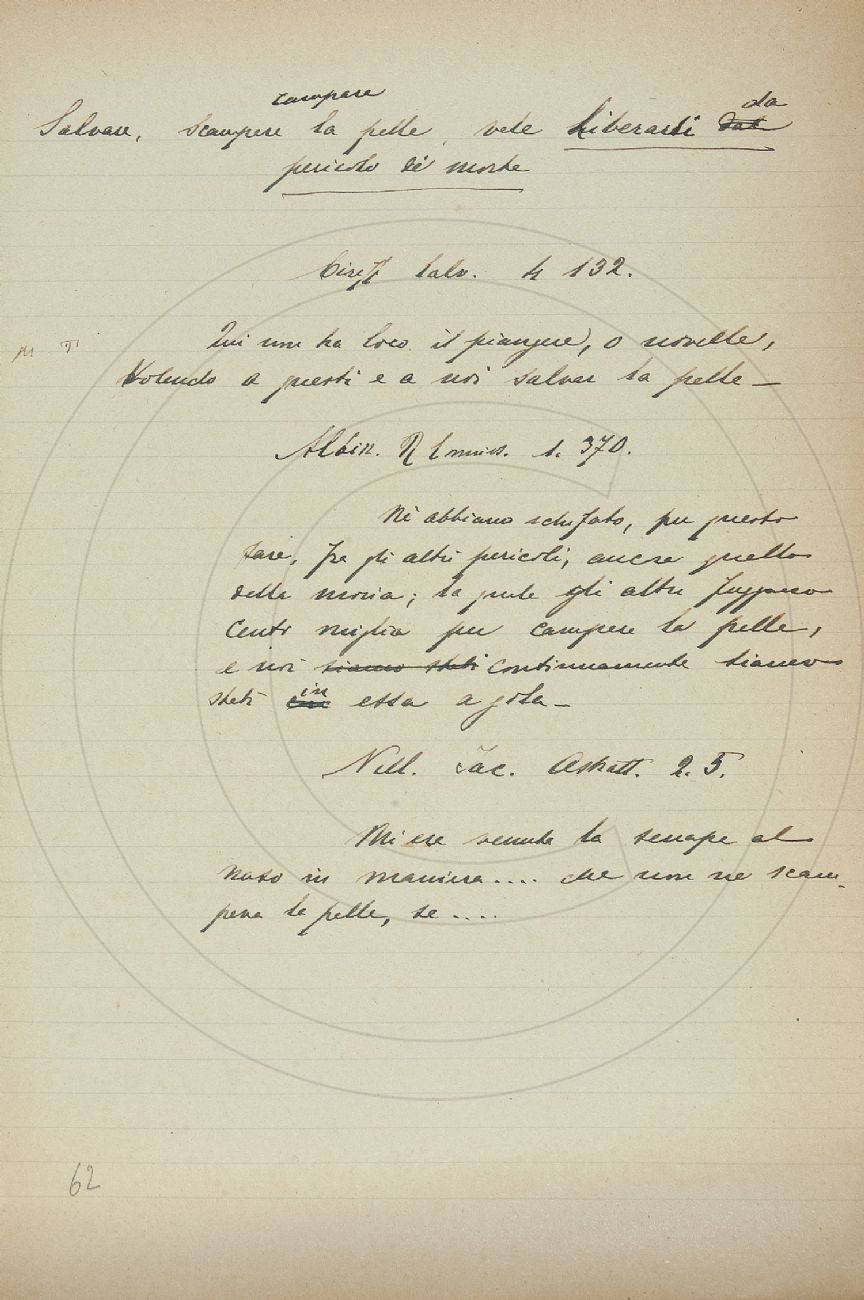 campare
Salvare, scampare la pelle, vale Liberarsi ~~dal~~ da
pericolo di morte
Ciriff. Calv. 4 132.
Qui non ha loco il piangere, o novelle,
Volendo a questi e a noi salvar la pelle —
Albizz. R 1. 370.
Ni abbiamo schifato, per questo
fare, fra gli altri pericoli, ancora quello
della moria; la quale gli altri fuggono
cento miglia per campare la pelle,
e noi ~~siamo stati~~ continuamente siamo
stati in essa a gola —
Nell. Iac. Astratt. 2. 5.
Mi era venuta la senape al
naso in maniera.... che non ne scam-
pava la pelle, se ....
62